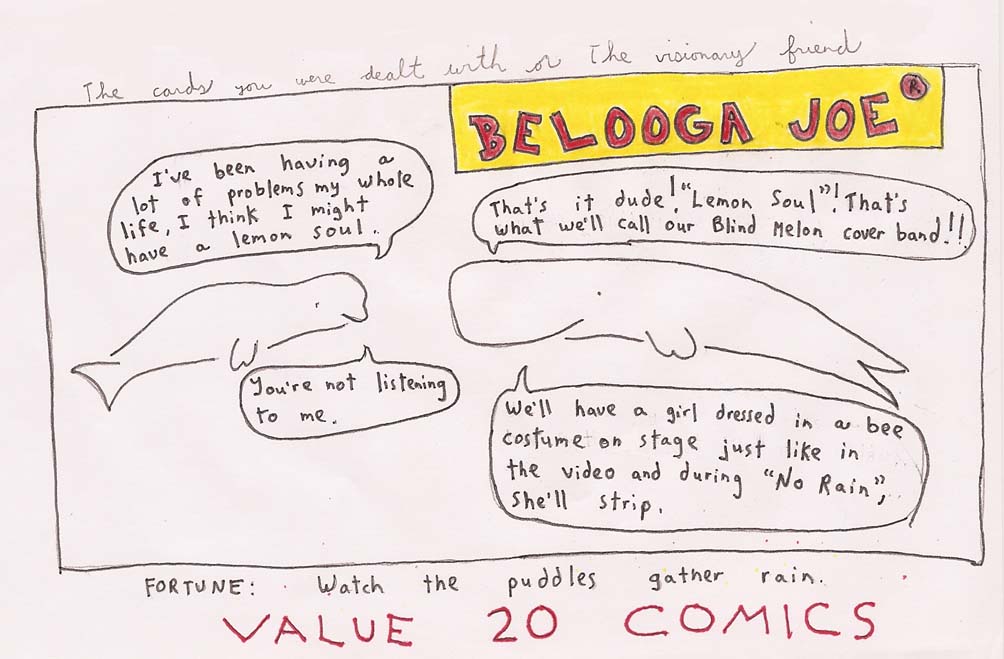 The cards you were dealt with or The visionary friend
BELOOGA JOE ®
I've been having a
lot of problems my whole
life, I think I might
have a lemon soul.
That's it dude! "Lemon Soul"! That's
what we'll call our Blind Melon cover band!!
You're not listening
to me.
We'll have a girl dressed in a bee
costume on stage just like in
the video and during "No Rain",
She'll strip.
FORTUNE: Watch the puddles gather rain.
VALUE 20 COMICS